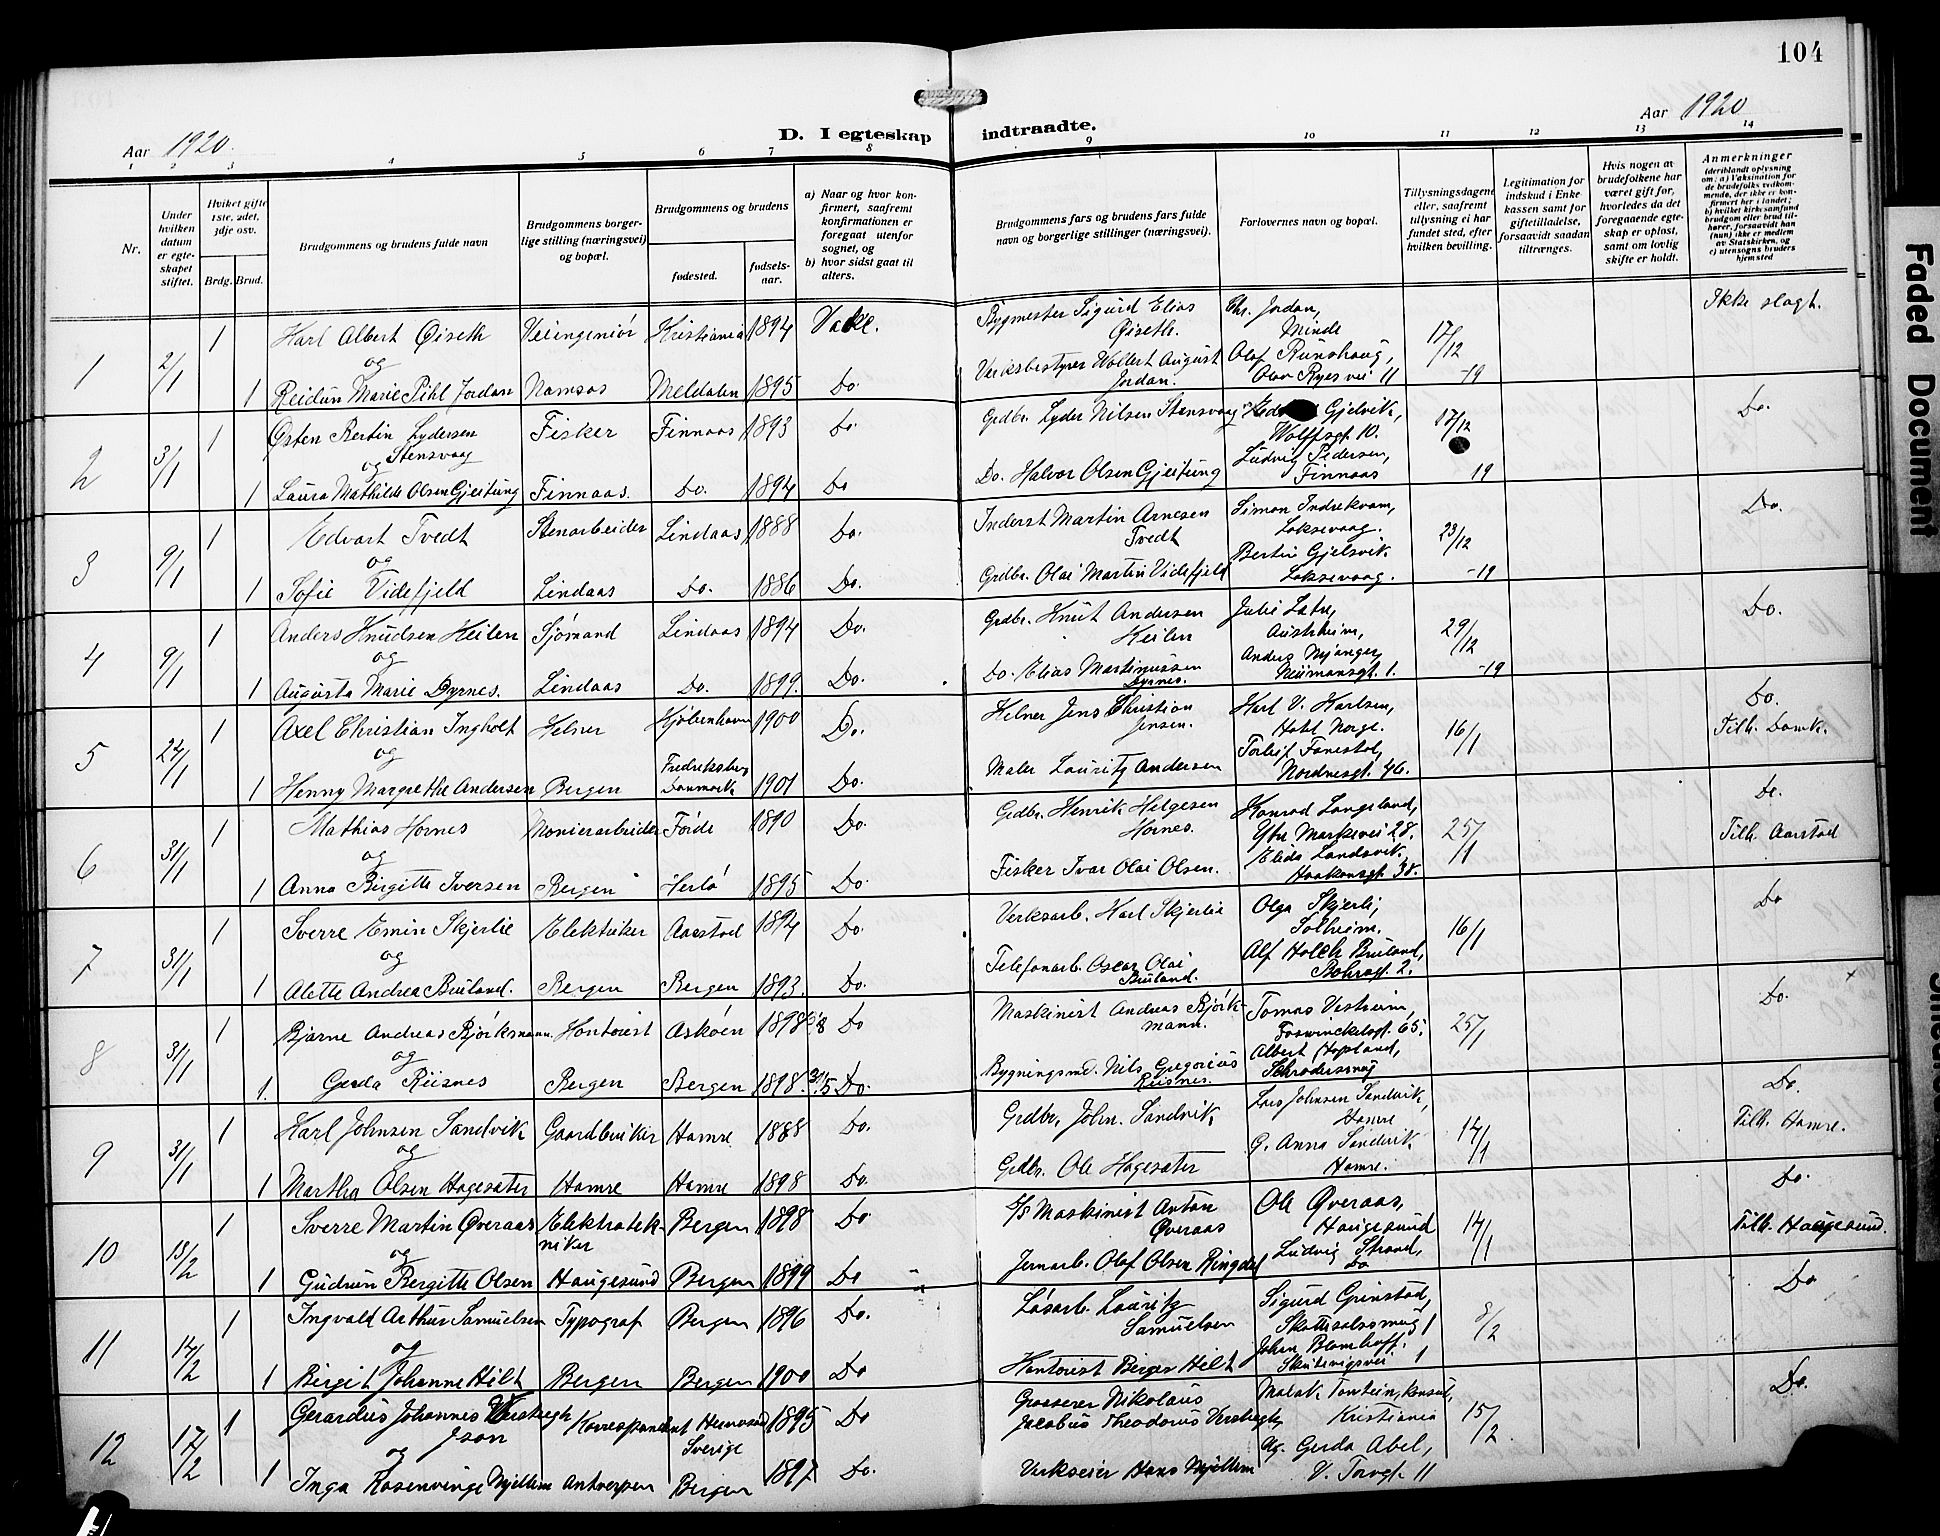 104
Aar 1920.
D. I egteskap indtraadte.
Aar 1920
1 2 3 4 5 6 7 8 9 10 11 12 13 14
Nr.
Under hvilken datum er egteskapet stiftet.
Hvilket gifte 1ste, 2det, 3dje osv.
Brdg. Brud.
Brudgommens og brudens fulde navn
Brudgommens borgerlige stilling (næringsvei) og bopæl.
Brudgommens og brudens
fødested.
fødselsaar.
a) Naar og hvor konfirmert, saafremt konfirmationen er foregaat utenfor sognet, og
b) hvor sidst gaat til alters.
Brudgommens fars og brudens fars fulde navn og borgerlige stillinger (næringsvei).
Forlovernes navn og bopæl.
Tillysningsdagene eller, saafremt tillysning ei har fundet sted, efter hvilken bevilling.
Legitimation for indskud i Enkekassen samt for giftetilladelse, forsaavidt saadan tiltrænges.
Hvis nogen av brudefolkene har været gift før, hvorledes da det foregaaende egteskap er opløst, samt om lovlig skifte er holdt.
Anmerkninger
(deriblandt oplysning om: a) Vaksination for de brudefolks vedkommende, der ikke er konfirmert her i landet; b) hvilket kirkesamfund brudgom eller brud tilhører, forsaavidt han (hun) ikke er medlem av Statskirken, og c) utensogns bruders hjemsted
1 2/1 1 Karl Albert Øiseth Veiingeniør Kristiania 1894 Bygmester Sigurd Elias Øiseth. Chr. Jordan, Minde 17/12 -19 Ikke slagt.
og
1 Reidun Marie Pihl Jordan Namsos Meldalen 1895 Do. Verksbestyrer Wollert August Jordan. Olaf Runshaug, Olav Ryes vei 11
2 3/1 1 Østen Bertin Lydersen Stensvaag Fisker Finnaas 1893 Do. Grdbr. Lyder Nilsen Stensvaag Gjelvik, Wolffsgt. 10. 17/12 -19 Do.
og
1 Laura Mathilde Olsen Gjeitung Finnaas. Do. 1894 Do Do. Halvor Olsen Gjeitung Ludvig Pedersen, Finnaas
3 9/1 1 Edvart Tvedt Stenarbeider Lindaas 1888 Do. Inderst Martin Arnesen Tvedt Simon Indrekvam, Loksevaag. 23/12 -19 Do.
og
1 Sofie Videfjeld Lindaas Do. 1886 Do. Grdbr. Olai Martin Videfjeld Bertin Gjelsvik Loksevaag.
4 9/1 1 Anders Knudsen Keilen Sjømand Lindaas 1894 Do. Grdbr. Knut Andersen Keilen Julie Late, Austrheim, 29/12 -19 Do.
og
1 Augusta Marie Dyrnes. Lindaas Do. 1899. Do. Do. Elias Martinussen Dyrnes. Anders Mjanger, Neumansgt. 1.
5 24/1 1 Axel Christian Ingholt Kelner Kjøbenhavn 1900 Do. Kelner Jens Christian Jensen. Karl V. Karlsen, Hotel Norge. 16/1 Do. Tilh. Domk.
og
1 Henny Margrethe Andersen Bergen Fredriksberg Danmark 1901 Do. Maler Lauritz Andersen Torleif Fanestol, Nordnesgt. 46.
6 31/1 1 Mathias Hornes Monierarbeider Førde 1890 Do. Grdbr. Henrik Helgesen Hornes. Konrad Langeland, Ytre Markevei 28. 25/1 Do. Tilh. Aarstad
og
1 Anna Birgitte Iversen Bergen Herlø 1895 Do. Fisker Ivar Olai Olsen. Elida Landsvik, Haakonsgt. 38.
7 31/1 1 Sverre Emin Skjerlie Elektriker Aarstad 1894 Do. Verksarb. Karl Skjerlie Olga Skjerli, Solheim. 16/1 Do
og
1 Alette Andrea Bruland. Bergen Bergen 1893. Do. Telefonarb. Oscar Olai Bruland. Alf Holch Bruland, Bohrsgt. 2.
8 31/1 1 Bjarne Andreas Bjørksmann. Kontorist Askøen 1898 Do Maskinist Andreas Bjørkmann. Tomas Vestheim, Foswinckelsgt. 65. 25/1 Do.
og
1. Gerda Risnes Bergen Bergen 1898. 31/5 Do. Bygningsmd. Nils Gregorius Risnes. Albert Hopland, Schrødersmug
9 31/1 1 Karl Johnsen Sandvik Gaardbruker Hamre 1888 Do. Grdbr. John. Sandvik Lars Johnsen Sandvik, Hamre 14/1 Do. Tilh. Hamre.
og
1 Martha Olsen Hagesæter Hamre Hamre 1898 Do. Grdbr. Ole Hagesæter G. Anna Sandvik Hamre.
10 15/2 1 Sverre Martin Øveraas Elektrotekniker Bergen 1898 Do. Maskinist Anton Øveraas Ole Øveraas, Haugesund 14/1 Do. Tilh. Haugesund.
og
1 Gudrun Bergitte Olsen Haugesund Bergen 1899 Do Jernarb. Olaf Olsen Ringdal Ludvig Strand, Do
11 14/2 1 Ingvald Arthur Samuelsen Typograf Bergen 1896 Do. Løsarb. Lauritz Samuelsen Sigurd Grimstad, Skottesalsmug 1 8/2 Do
og
1 Birgit Johanne Hilt Bergen Bergen 1900 Do Kontorist Birger Hilt Johan Blomhoff, Skutevigsvei 1
12 17/2 1 Gerardus Johannes Verstegh Json Korrespondent Sverige 1895 Do Grosserer Nikolaus Jacobus Theodorus Verstegh, konsul, Kristiania 15/2 Do.
og
1 Inga Rosenvinge Mjellem Antverpen Bergen 1897 Do. Verkseier Hans Mjellem Gerda Abel, V. Torvgt. 11
Faded Document